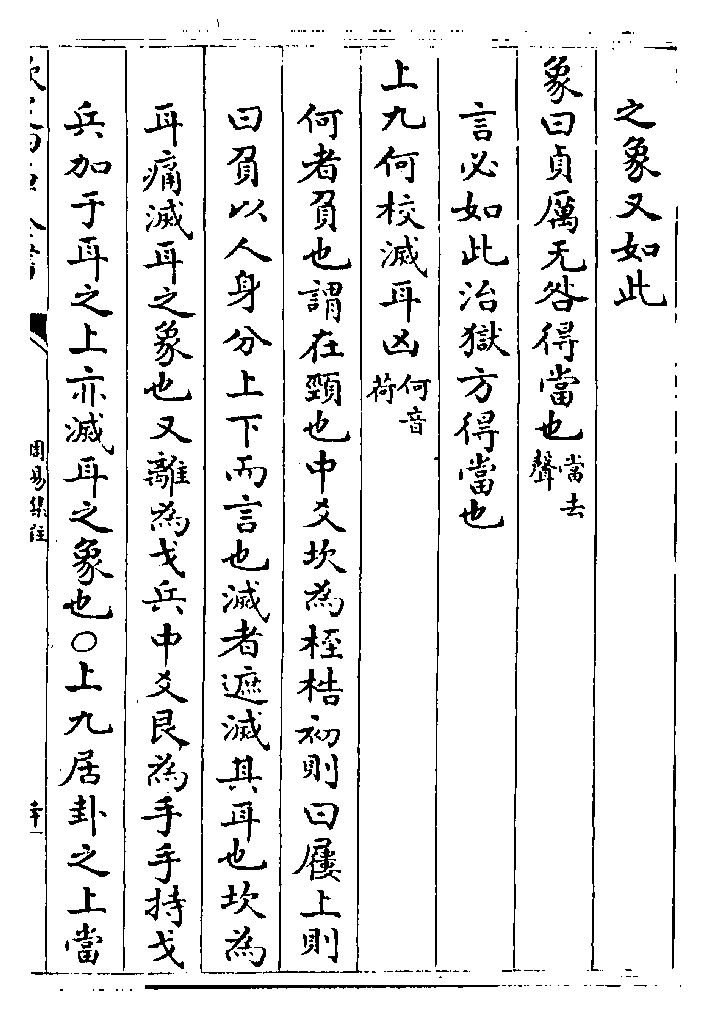 之象又如此
象曰貞厲无咎得當也當去聲
言必如此治獄方得當也
上九何校滅耳凶何音荷
何者負也謂在頸也中爻坎為桎梏初則曰屨上則
曰負以人身分上下而言也滅者遮滅其耳也坎為
耳痛滅耳之象也又離為戈兵中爻艮為手手持戈
兵加于耳之上亦滅耳之象也○上九居卦之上當
周易集註